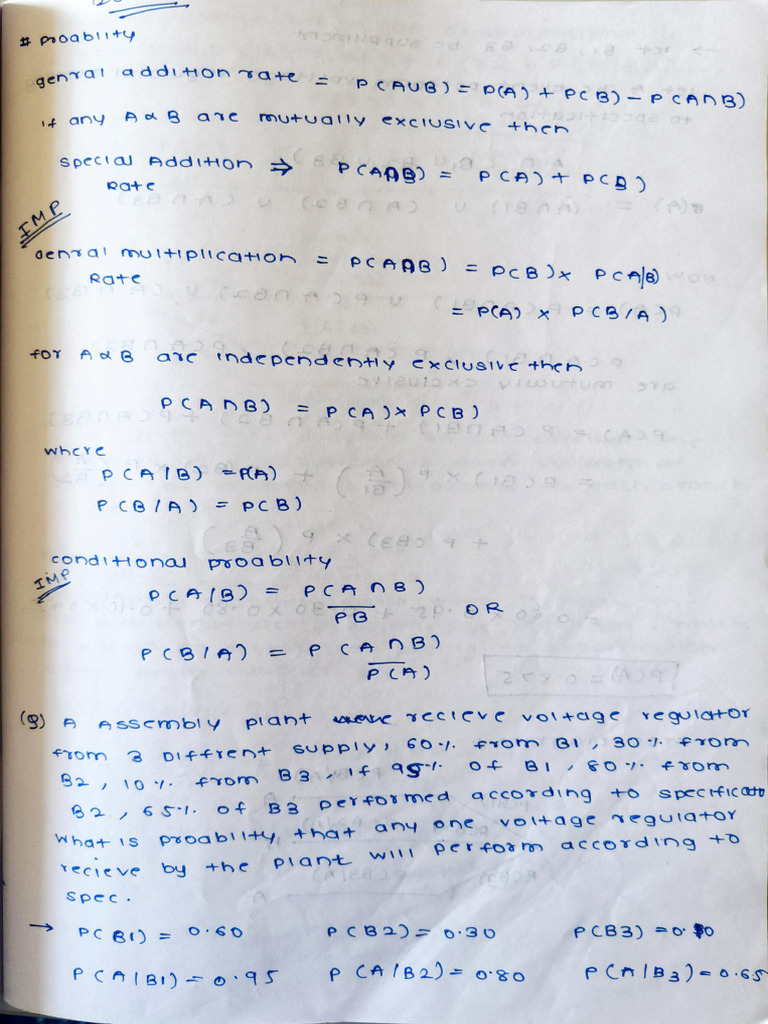 # proablity
genral addition rate = P(AUB) = P(A) + P(B) - P(A∩B)
if any A & B are mutually exclusive then
special Addition ⇒ P(A∩B) = P(A) + P(B)
Rate
IMP
Genral multiplication = P(A∩B) = P(B) x P(A/B)
Rate
= P(A) x P(B/A)
for A & B are independently exclusive then
P(A∩B) = P(A) x P(B)
where
P(A/B) = P(A)
P(B/A) = P(B)
conditional proablity
IMP
P(A/B) = P(A∩B)
PB OR
P(B/A) = P(A∩B)
P(A)
(Q) A Assembly plant recieve voltage regulator
from 3 Diffrent supply, 60% from B1, 30% from
B2, 10% from B3, If 95% of B1, 80% from
B2, 65% of B3 performed according to specificato
what is proablity, that any one voltage regulator
recieve by the plant will perform according to
spec.
→ P(B1) = 0.60 P(B2) = 0.30 P(B3) = 0.10
P(A/B1) = 0.95 P(A/B2) = 0.80 P(A/B3) = 0.65